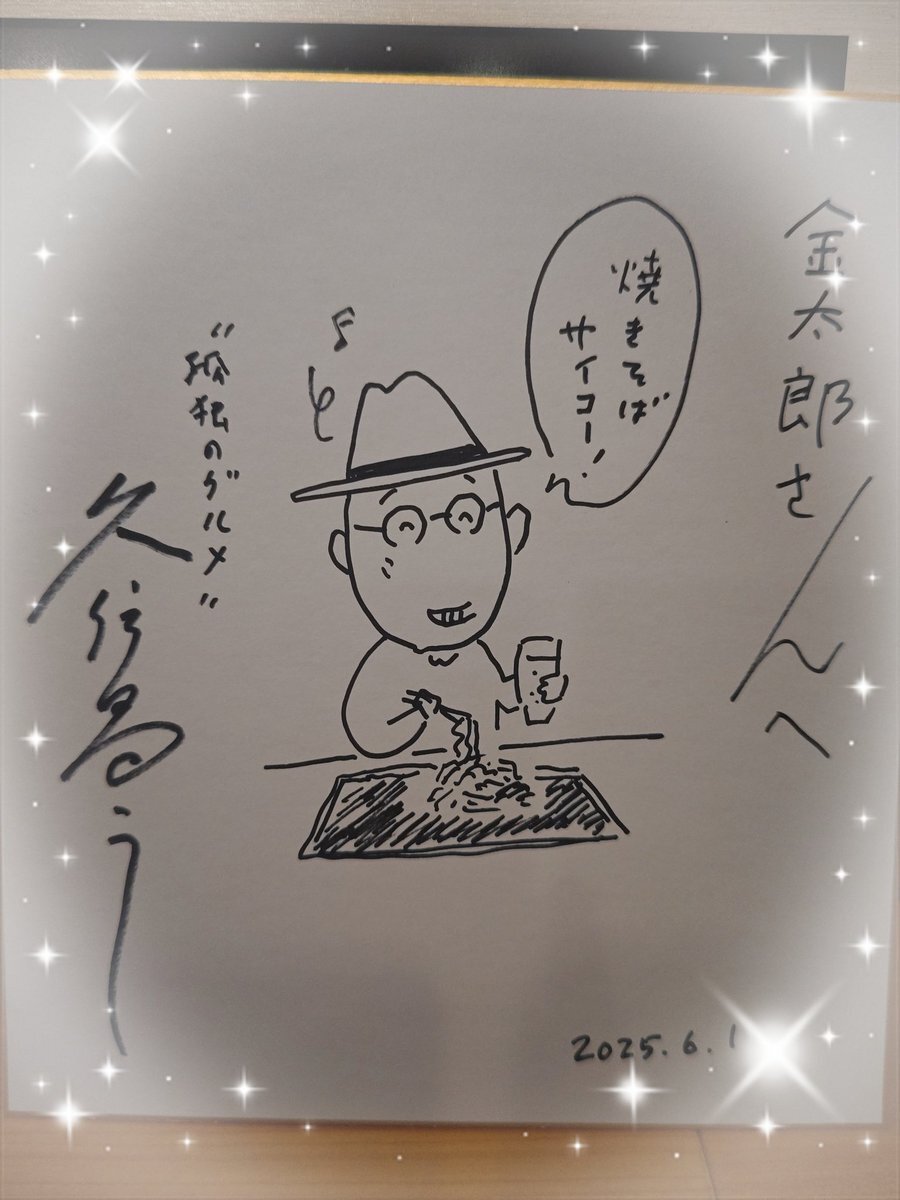 金太郎さんへ
焼きそば
サイコー!
"孤独のグルメ"
久住昌之
2025.6.1